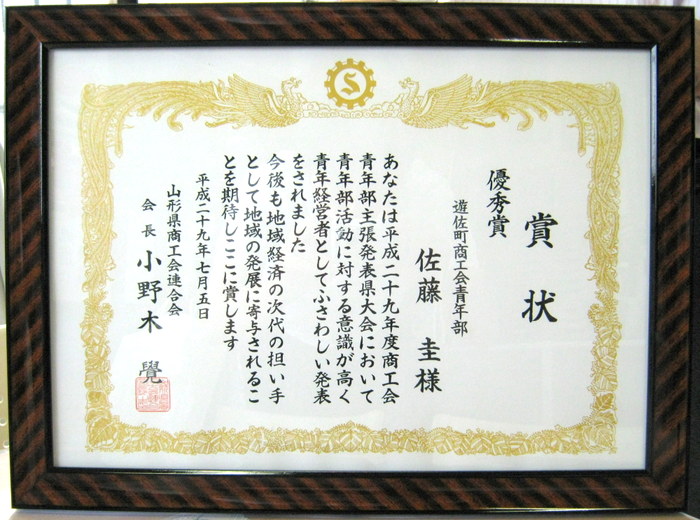 賞状
優秀賞
遊佐町商工会青年部
佐藤 圭様
あなたは平成二十九年度商工会
青年部主張発表県大会において
青年部活動に対する意識が高く
青年経営者としてふさわしい発表
をされました
今後も地域経済の次代の担い手
として地域の発展に寄与されるこ
とを期待しここに賞します
平成二十九年七月五日
山形県商工会連合会
会長 小野木 覺